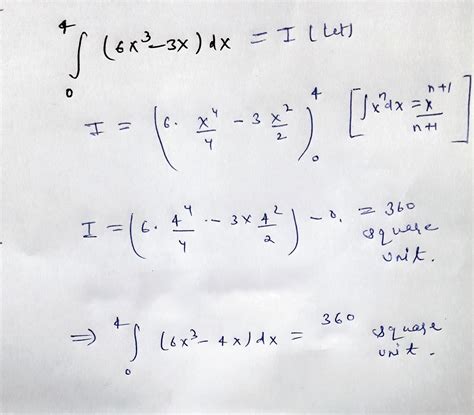 ∫₀⁴ (6x³-3x) dx = I (Let)
I = (6. x⁴/4 - 3 x²/2)₀⁴ [∫xⁿdx = xⁿ⁺¹/n+1]
I = (6. 4⁴/4 - 3 x 4²/2) - 0. = 360 square unit.
⇒ ∫₀⁴ (6x³-4x) dx = 360 square unit.